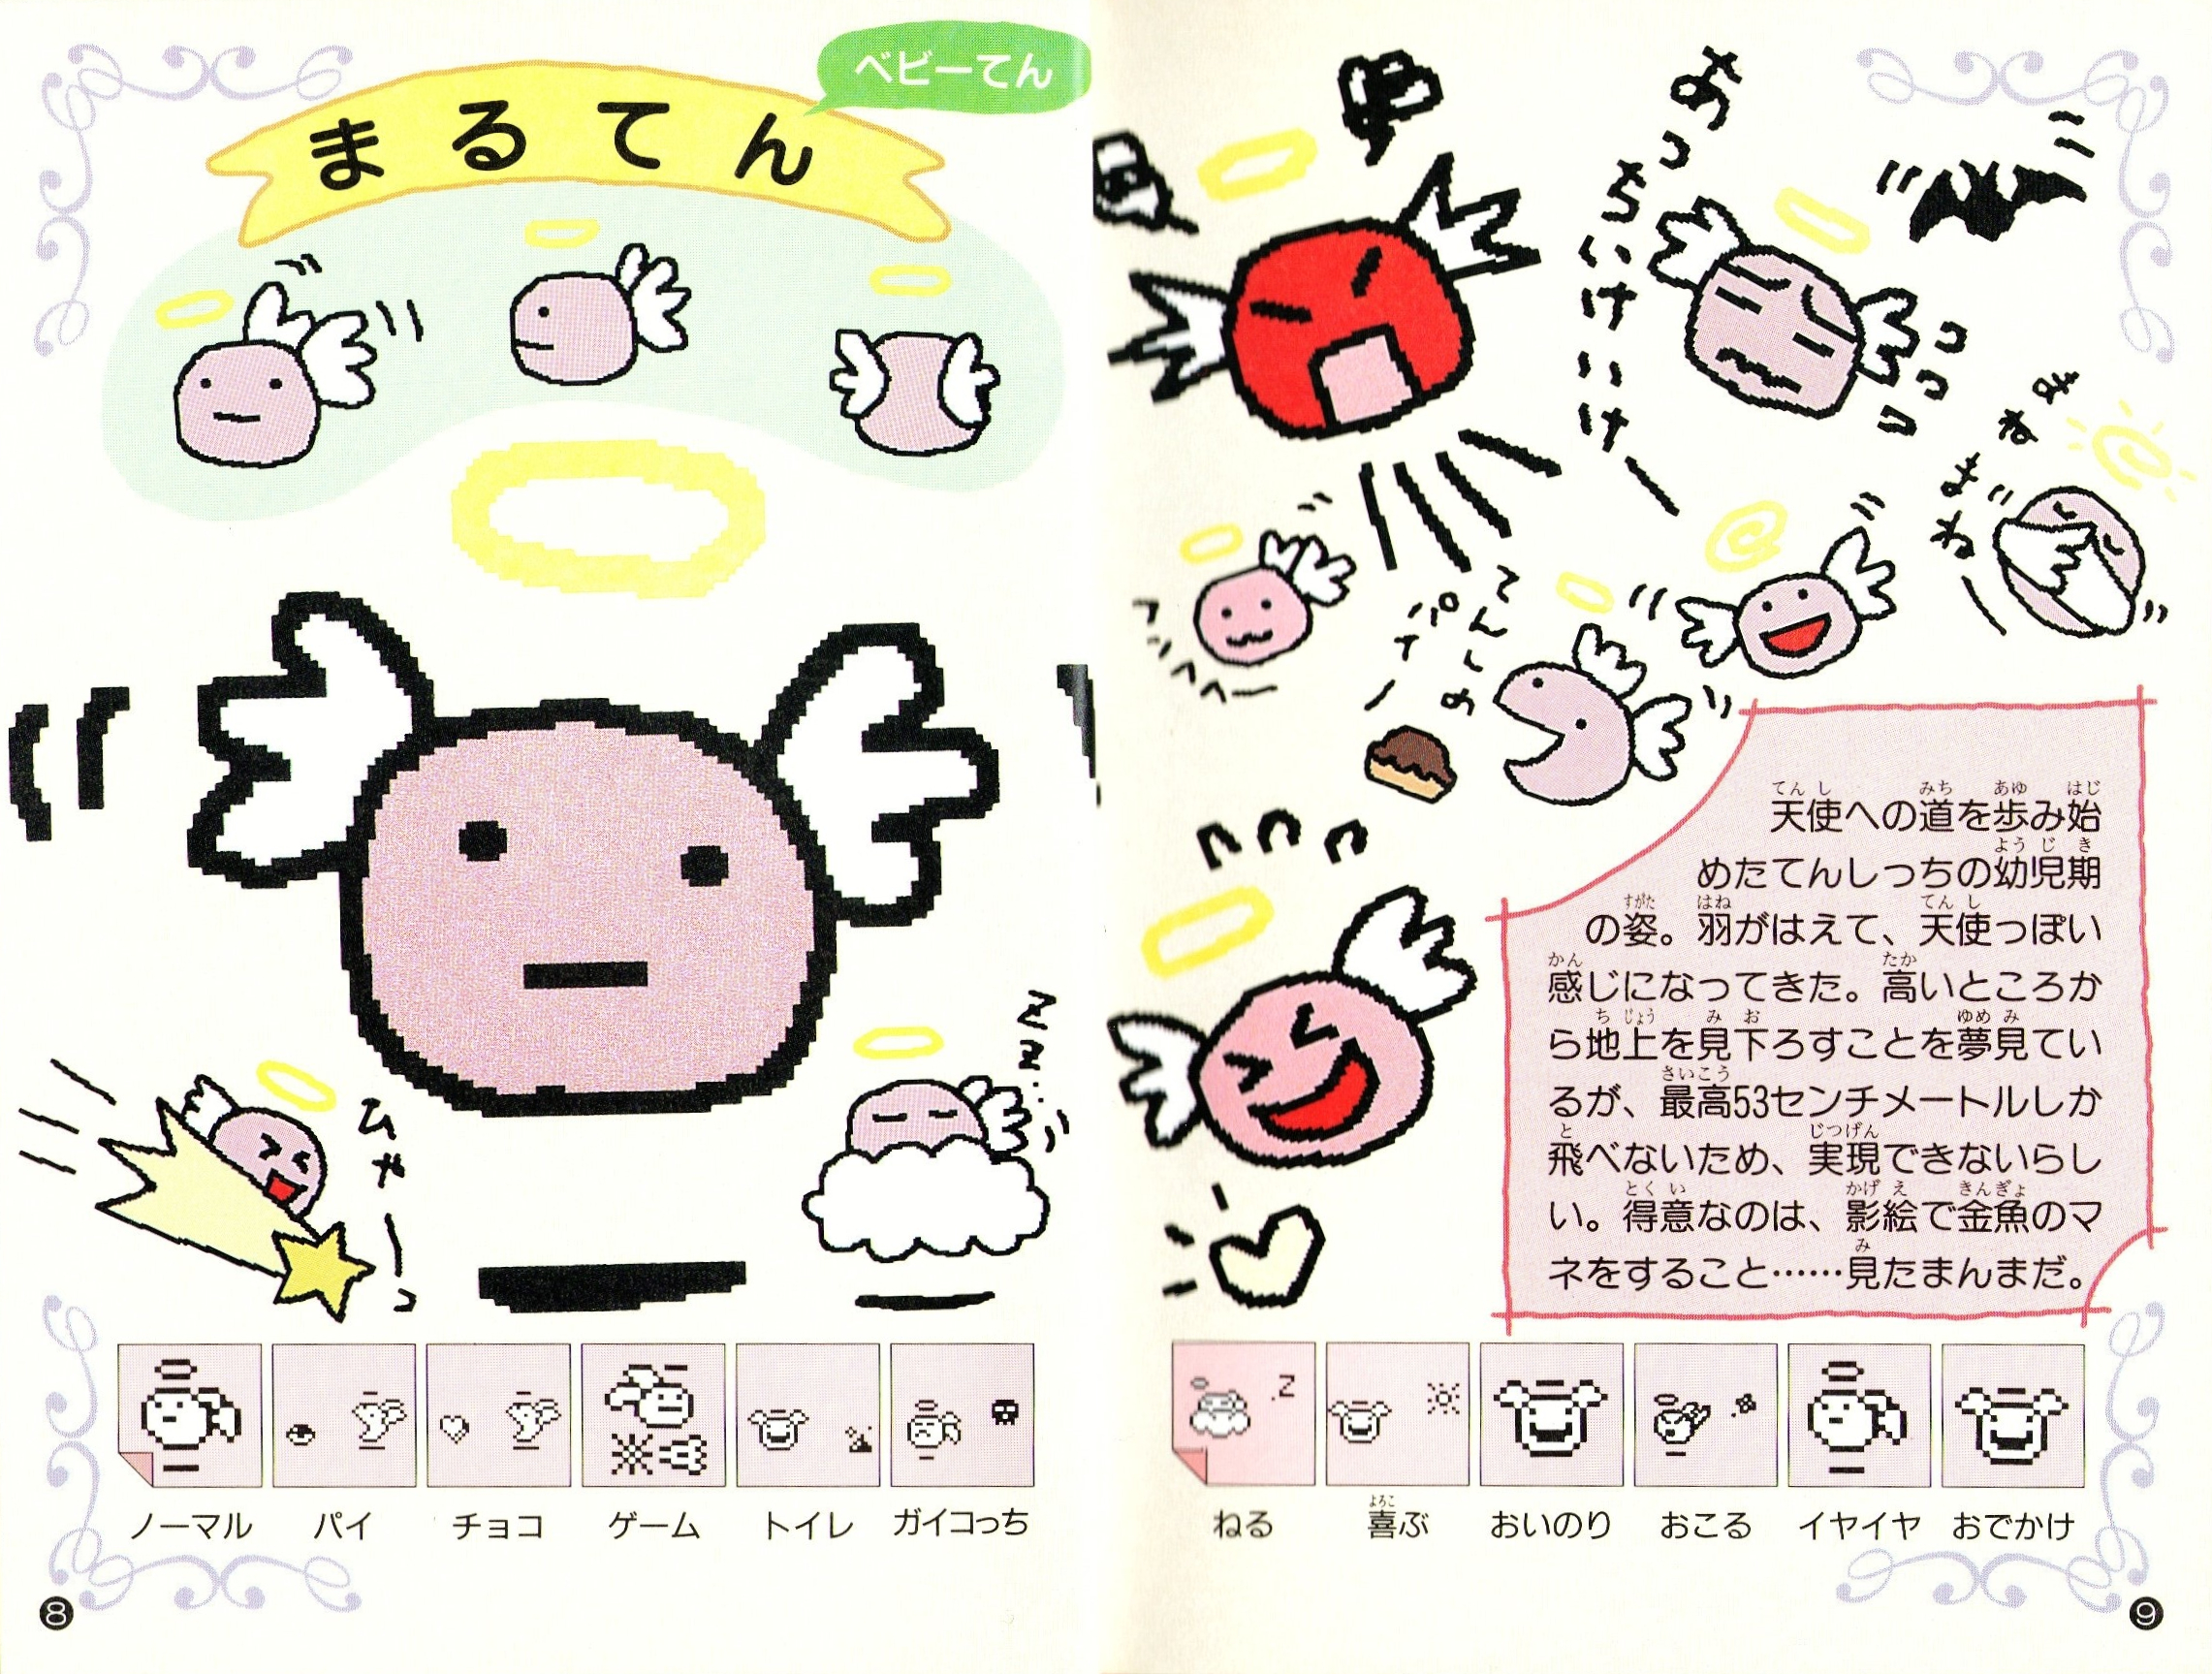 ベビーてん
まるてん
ひゃーっ
ZZ..
ノーマル
パイ
チョコ
ゲーム
トイレ
ガイコっち
8
あっちいけいけー
てんしの
パイー
天使への道を歩み始
めたてんしっちの幼児期
の姿。羽がはえて、天使っぽい
感じになってきた。高いところか
ら地上を見下ろすことを夢見てい
るが、最高53センチメートルしか
飛べないため、実現できないらし
い。得意なのは、影絵で金魚のマ
ネをすること……見たまんまだ。
ねる
喜ぶ
おいのり
おこる
イヤイヤ
おでかけ
9